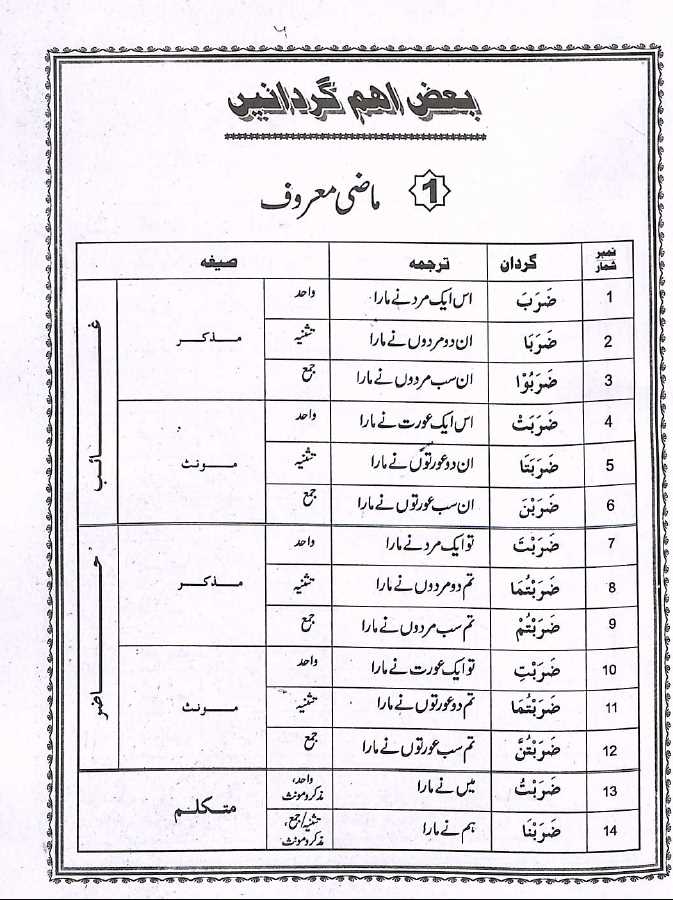 ٦
بعض اہم گردانیں
1 ماضی معروف
نمبر شمار گردان ترجمہ صیغہ
1 ضَرَبَ اس ایک مرد نے مارا واحد
2 ضَرَبَا ان دو مردوں نے مارا تثنیہ مذکر
3 ضَرَبُوْا ان سب مردوں نے مارا جمع
غائب
4 ضَرَبَتْ اس ایک عورت نے مارا واحد
5 ضَرَبَتَا ان دو عورتوں نے مارا تثنیہ مونث
6 ضَرَبْنَ ان سب عورتوں نے مارا جمع
7 ضَرَبْتَ تو ایک مرد نے مارا واحد
8 ضَرَبْتُمَا تم دو مردوں نے مارا تثنیہ مذکر
9 ضَرَبْتُمْ تم سب مردوں نے مارا جمع
حاضر
10 ضَرَبْتِ تو ایک عورت نے مارا واحد
11 ضَرَبْتُمَا تم دو عورتوں نے مارا تثنیہ مونث
12 ضَرَبْتُنَّ تم سب عورتوں نے مارا جمع
13 ضَرَبْتُ میں نے مارا واحد، مذکر و مونث
متکلم
14 ضَرَبْنَا ہم نے مارا تثنیہ/جمع، مذکر و مونث